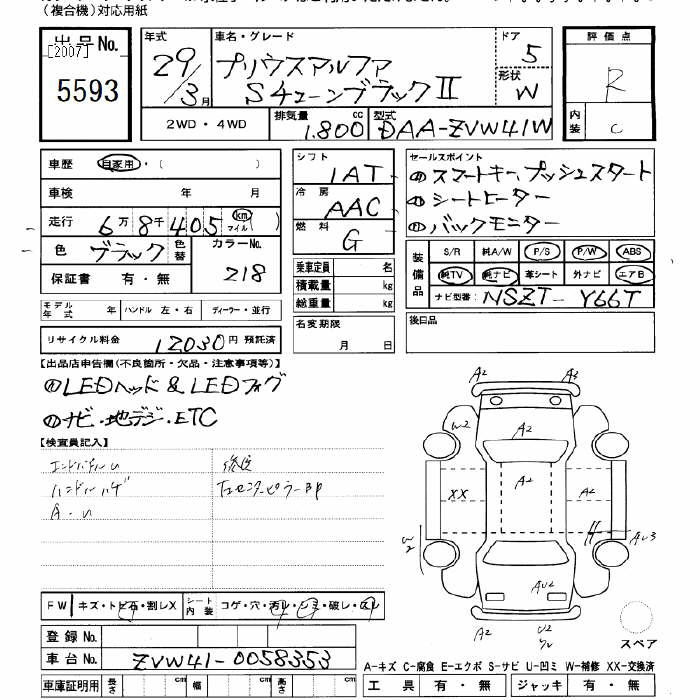 (複合機)対応用紙
出品No.
[2007]
5593
年式
29/3月
車名・グレード
プリウスアルファ
Sチューンブラック II
ドア
5
形状
W
評価点
R
内装
C
2WD・4WD
排気量 1.800 cc
型式 DAA-ZVW41W
車歴 自家用・( )
車検 年 月
走行 6万8千405 km マイル ( )
色 ブラック
色替
カラーNo.
218
保証書 有・無
モデル年式 年
ハンドル 左・右
ディーラー・並行
リサイクル料金 12030円 預託済
シフト
IAT
冷房
AAC
燃料
G
乗車定員 名
積載量 kg
総重量 kg
名変期限
月 日
セールスポイント
スマートキー、プッシュスタート
シートヒーター
バックモニター
装備品
S/R 純A/W P/S P/W ABS
純TV 純ナビ 革シート 外ナビ エアB
ナビ型番: NSZT-Y66T
後日品
【出品店申告欄(不良箇所・欠品・注意事項等)】
LEDヘッド & LEDフォグ
ナビ・地デジ・ETC
【検査員記入】
ハンドルハゲ
A・U
修復
右センターピラーBP
FW キズ・トビ石・割レX
シート内装 コゲ・穴・汚レ・シミ・破レ・スレ
登録No.
車台No. ZVW41-0058353
車庫証明用 長さ cm 幅 cm 高さ cm
A2 A3
W2 A2
A2
XX A2
W2
AU3
AU2
A2 U2
スペア
A-キズ C-腐食 E-エクボ S-サビ U-凹ミ W-補修 XX-交換済
工具 有・無 ジャッキ 有・無